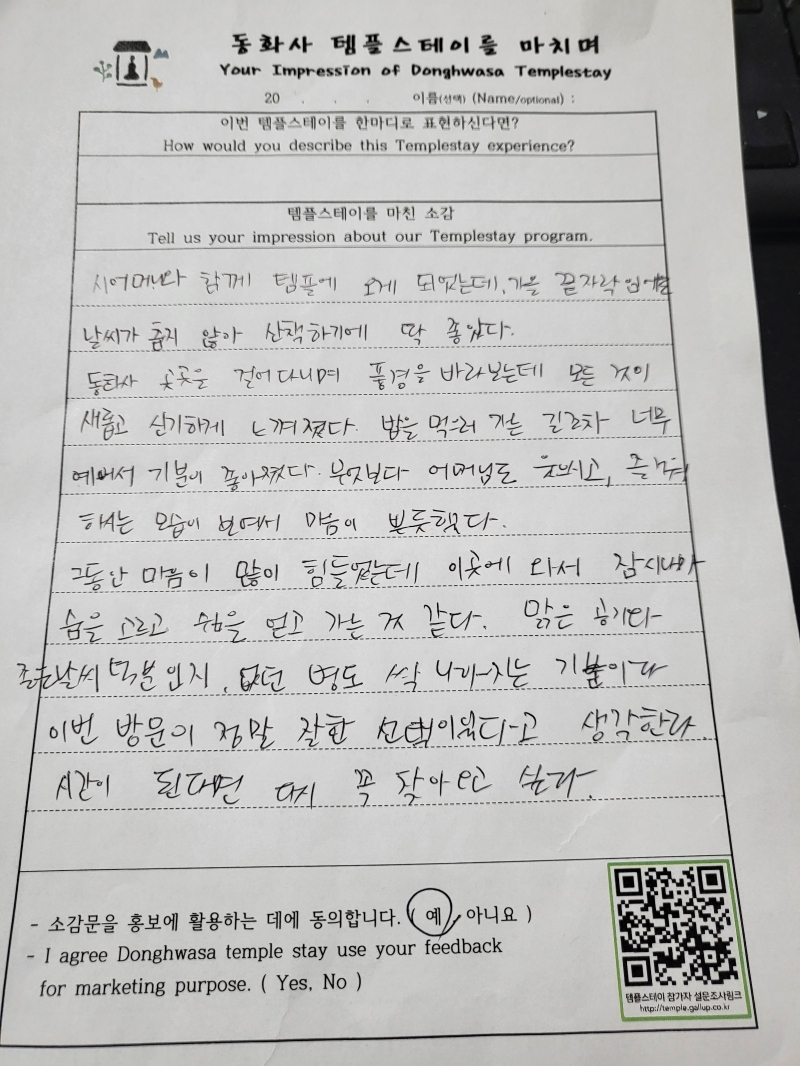 동화사 템플스테이를 마치며
Your Impression of Donghwasa Templestay
20 . . . 이름(선택) (Name/optional) :
이번 템플스테이를 한마디로 표현하신다면?
How would you describe this Templestay experience?
템플스테이를 마친 소감
Tell us your impression about our Templestay program.
시어머니와 함께 템플에 오게 되었는데, 가을 끝자락임에도
날씨가 춥지 않아 산책하기에 딱 좋았다.
동화사 곳곳을 걸어다니며 풍경을 바라보는데 모든 것이
새롭고 신기하게 느껴졌다. 밥을 먹으러 가는 길조차 너무
예뻐서 기분이 좋아졌다. 무엇보다 어머님도 웃으시고, 즐거워
하시는 모습이 보여서 마음이 뿌듯했다.
그동안 마음이 많이 힘들었는데 이곳에 와서 잠시나마
숨을 고르고 쉼을 얻고 가는 것 같다. 맑은 공기와
좋은날씨 덕분인지, 있던 병도 싹 나아지는 기분이다
이번 방문이 정말 잘한 선택이었다고 생각한다.
시간이 된다면 다시 꼭 찾아오고 싶다.
- 소감문을 홍보에 활용하는 데에 동의합니다. ( 예, 아니요 )
- I agree Donghwasa temple stay use your feedback
for marketing purpose. ( Yes, No )
템플스테이 참가자 설문조사링크
http://temple.gallup.co.kr